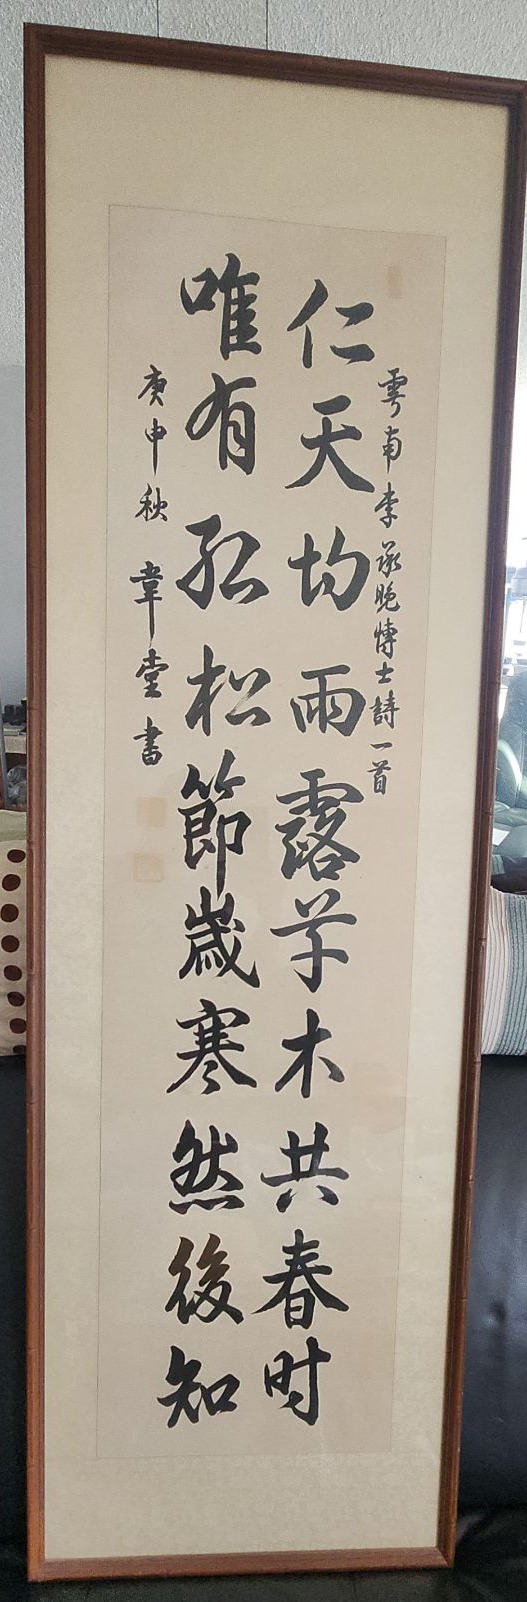 雩南李承晩愽士詩一首
仁天均雨露草木共春时
唯有孤松節歲寒然後知
庚申秋 韋堂書